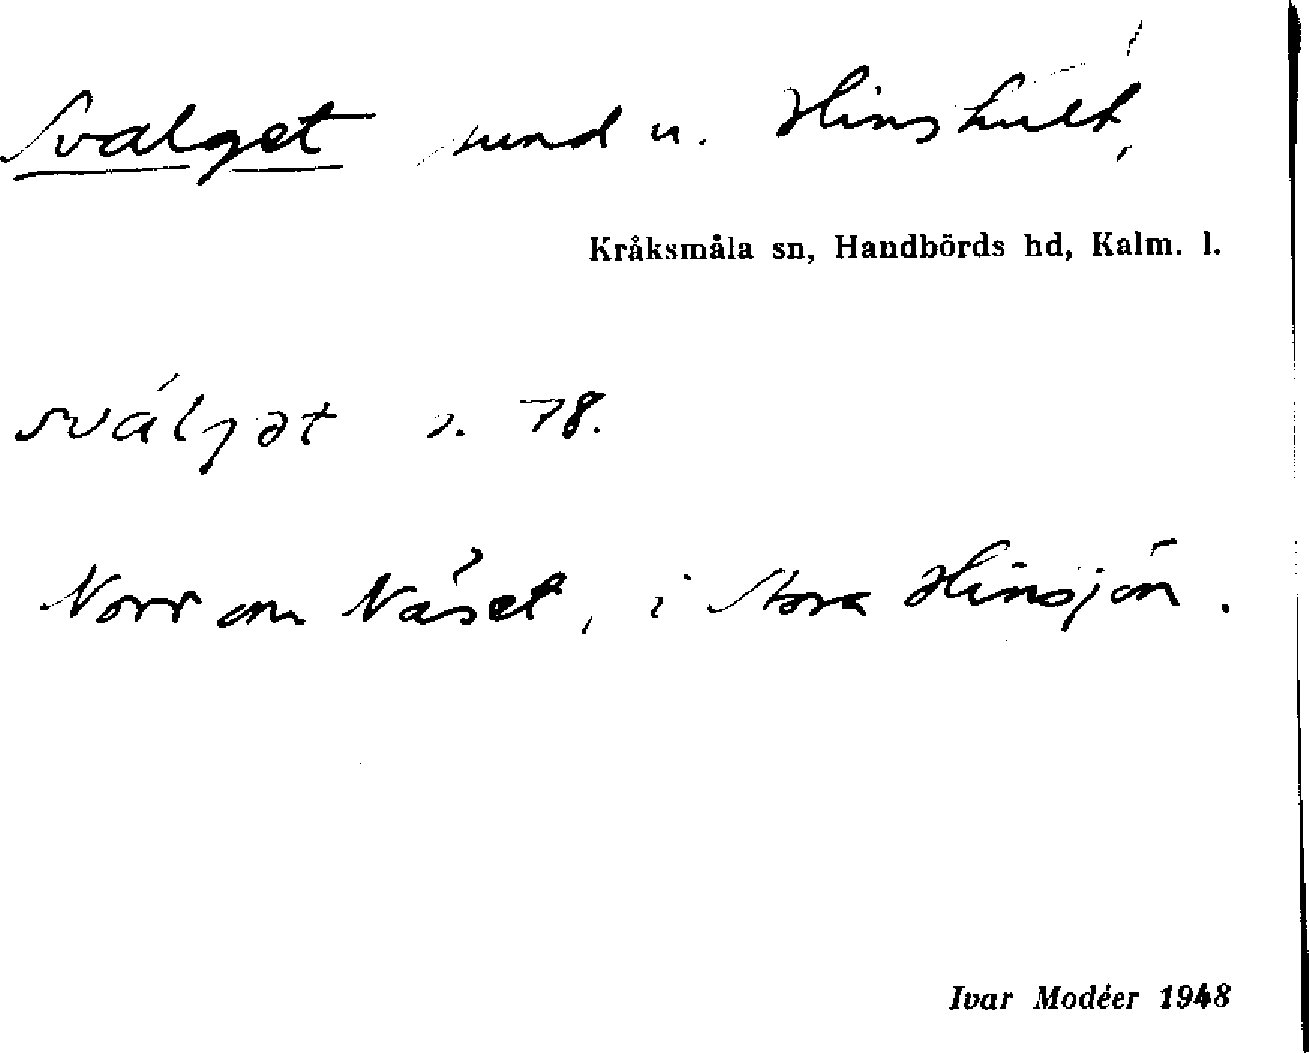 Svalget sund u. Hinshult,
Kråksmåla sn, Handbörds hd, Kalm. l.
sválgət s. 78.
Norr om Näset, i Stora Hinsjön.
Ivar Modéer 1948